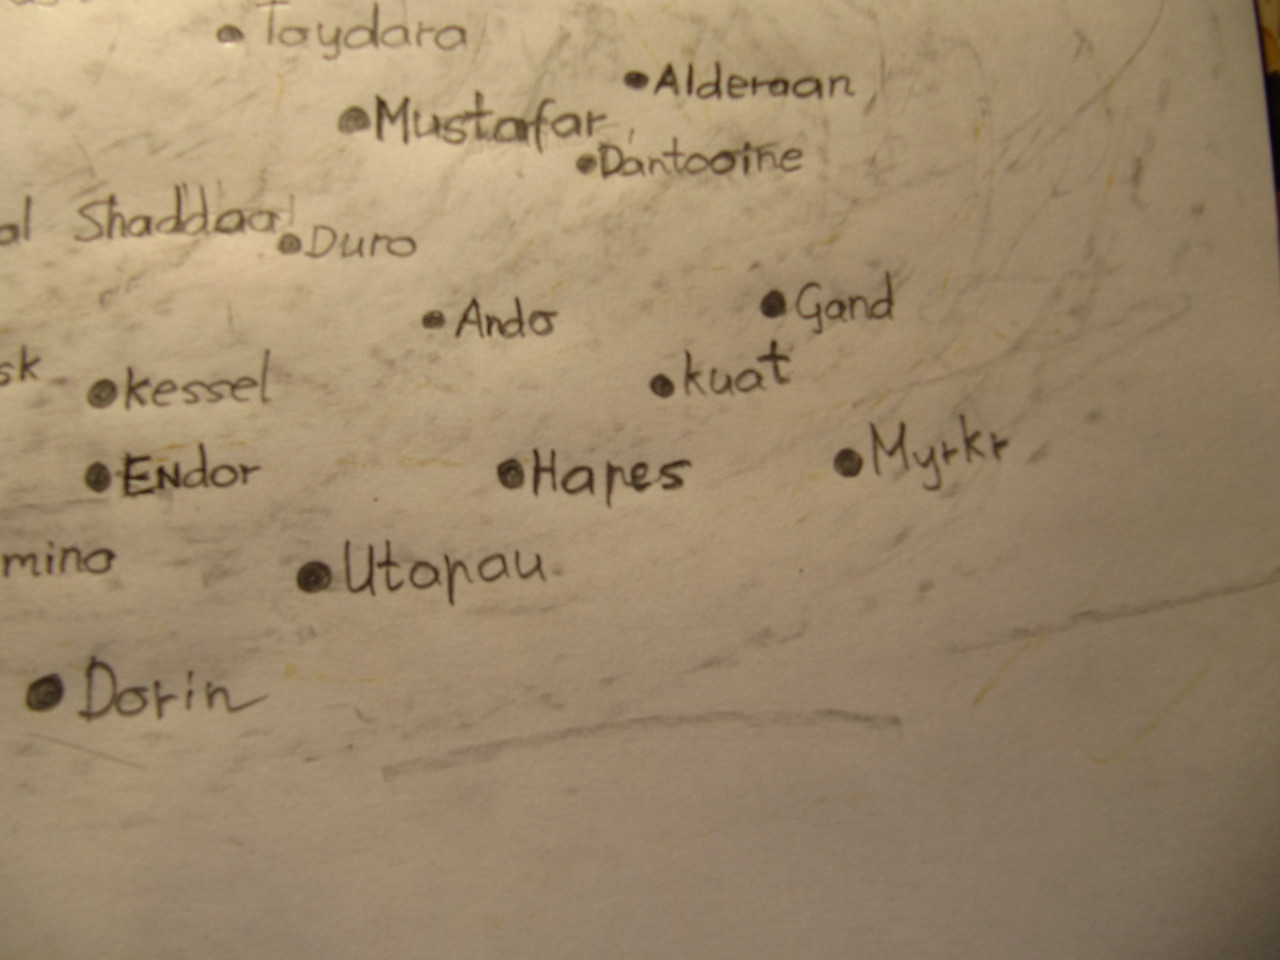 Toydara
Alderaan
Mustafar
Dantooine
al Shaddaa
Duro
Ando
Gand
sk
kessel
kuat
Endor
Hapes
Myrkr
mino
Utapau
Dorin